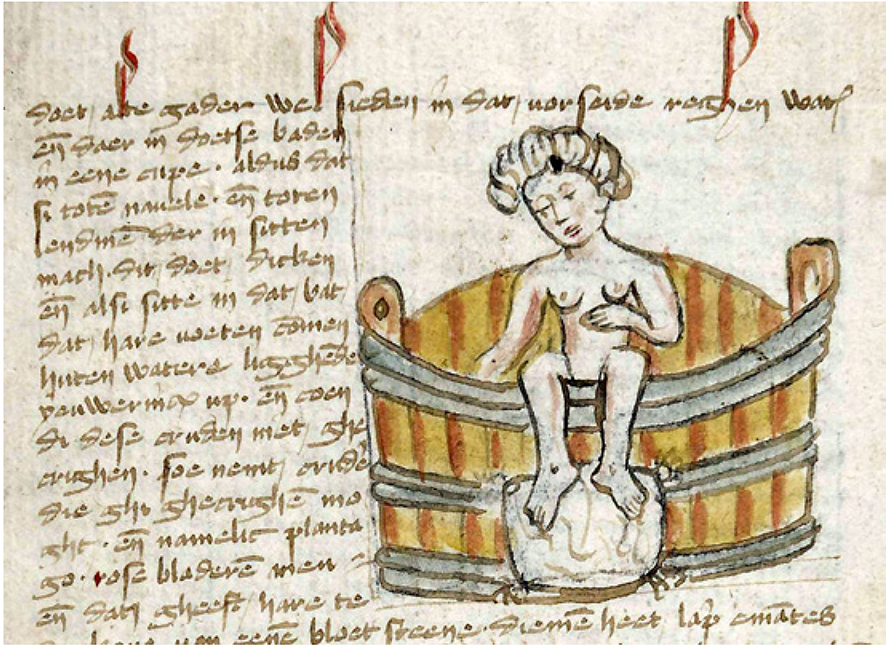 doet alte gader wel sieden in dat vorseide reghen wat̾
en̄ daer in doetse baden
in eene cupe · aldus dat
si totē navele · en̄ toten
lendinē der in sitten
mach · dit doet dicken
en̄ alsi sitte in dat bat
dat hare voeten cōmen
huten watere ligghēde
up · en̄ coen
di dese cruden niet ghe
crighen · soe nemt crudē
die ghi ghecrighē mo
ght · en̄ namelic planta
go · rose bladerē
en̄ dat gheeft hare te
van eenē bloet steene · diemē heet lap̄ emātes